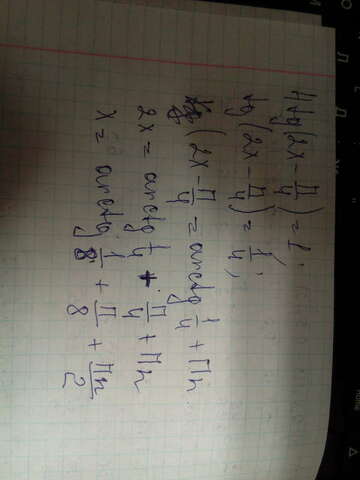 4tg(2x - П/4) = 1;
tg(2x - П/4) = 1/4;
(2x - П/4 = arctg 1/4 + Пn
2x = arctg 1/4 + П/4 + Пn
x = arctg 1/8 + П/8 + Пn/2